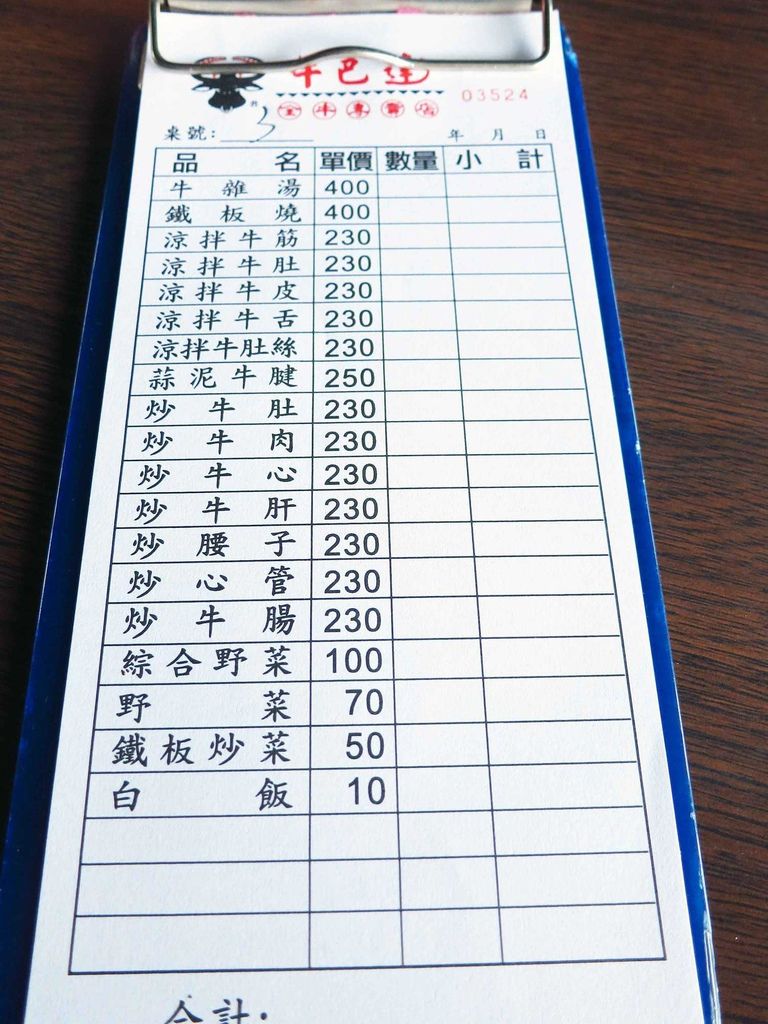 牛巴達
全牛專賣店
03524
桌號: 3 年 月 日
品名 單價 數量 小計
牛雜湯 400
鐵板燒 400
涼拌牛筋 230
涼拌牛肚 230
涼拌牛皮 230
涼拌牛舌 230
涼拌牛肚絲 230
蒜泥牛腱 250
炒牛肚 230
炒牛肉 230
炒牛心 230
炒牛肝 230
炒腰子 230
炒心管 230
炒牛腸 230
綜合野菜 100
野菜 70
鐵板炒菜 50
白飯 10
合計: